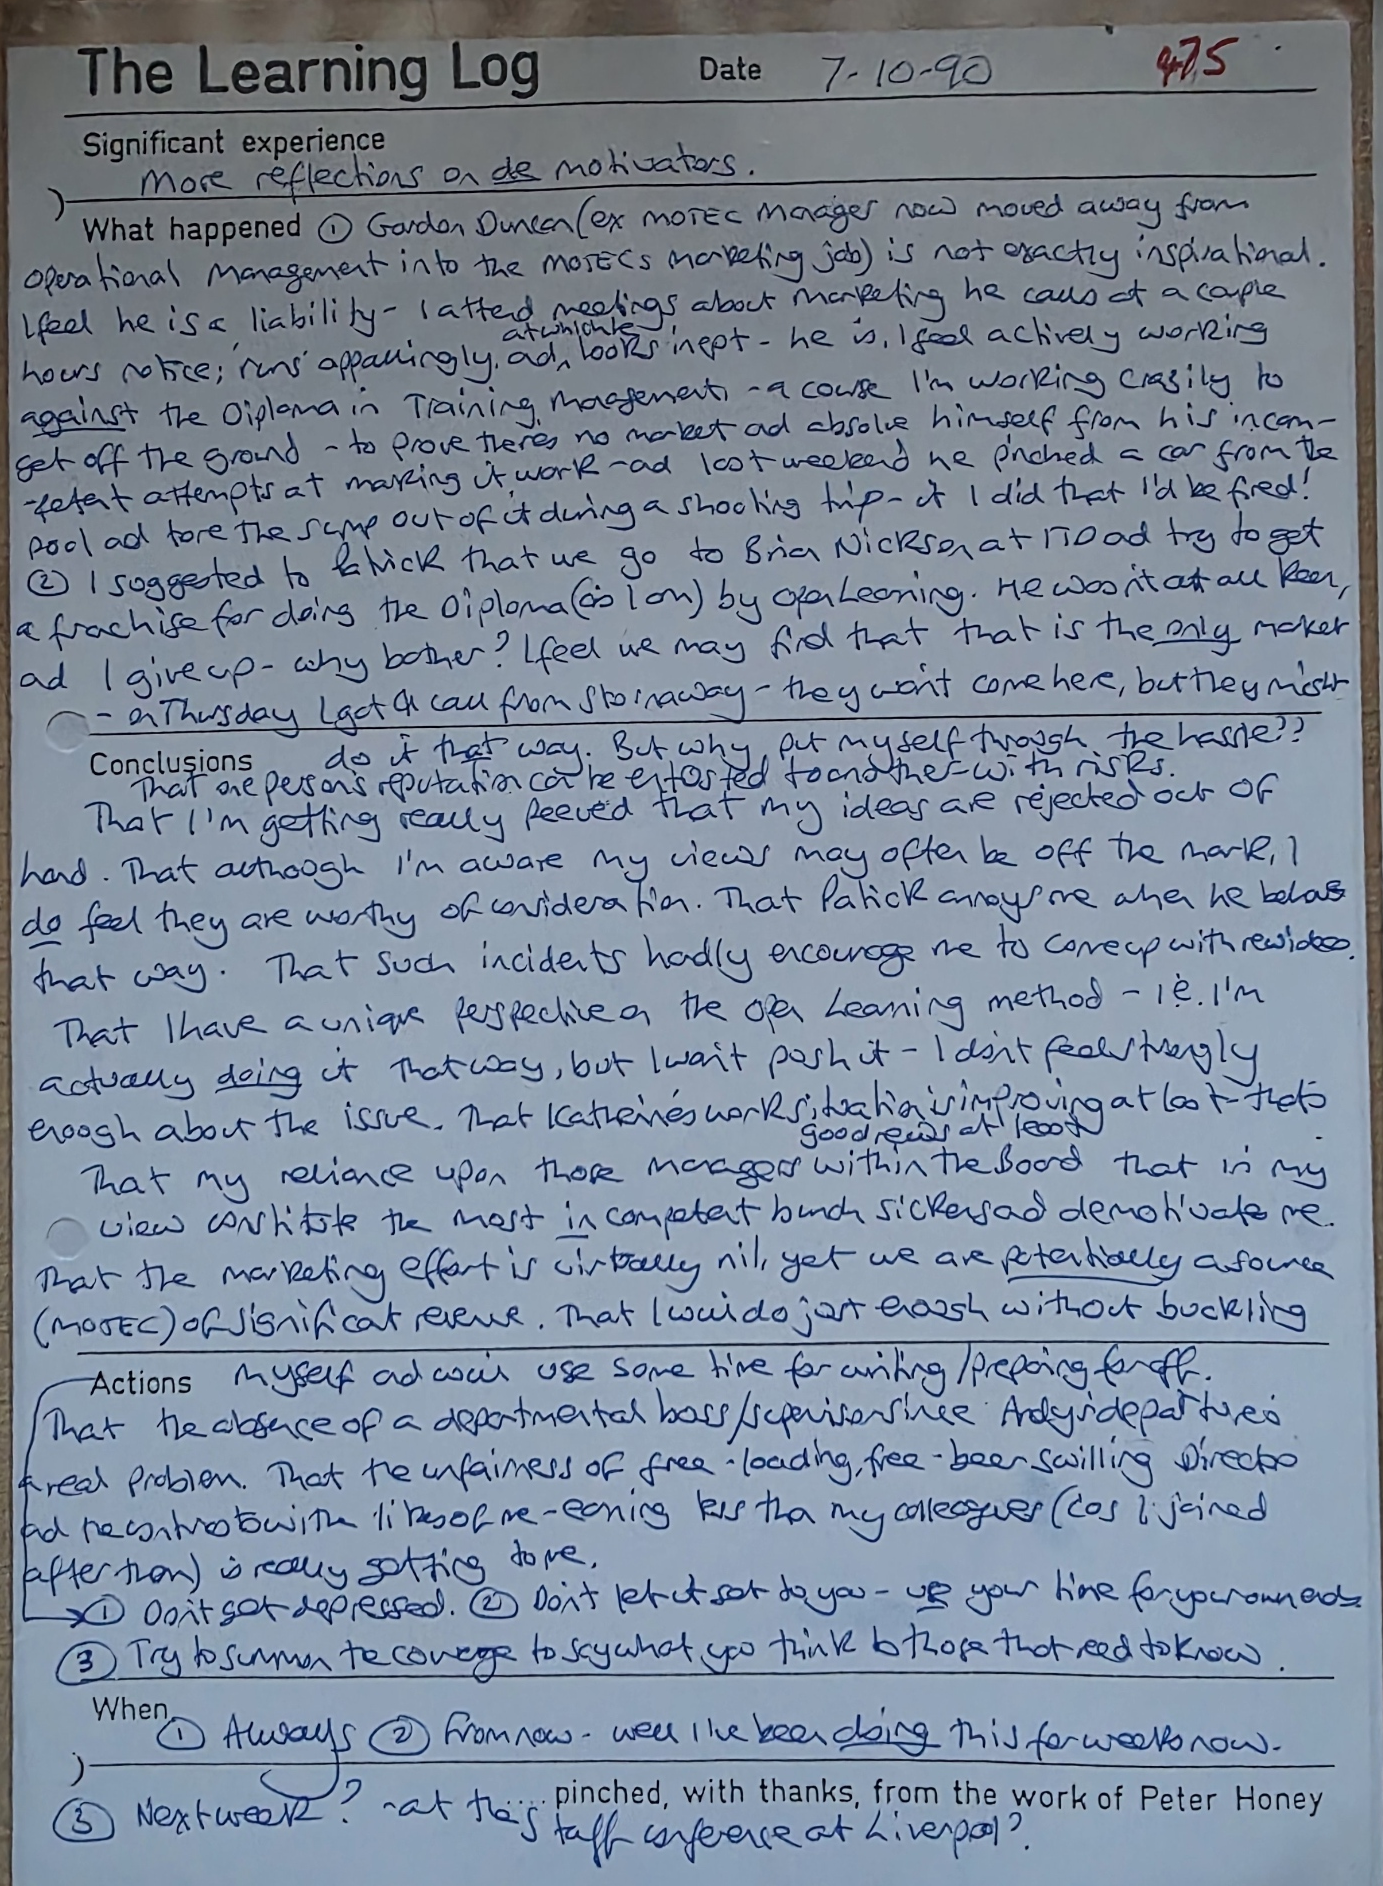 The Learning Log Date 7-10-90 475
Significant experience
More reflections on de motivators.
What happened ① Gordon Duncan (ex MOTEC Manager now moved away from
operational management into the MOTECs marketing job) is not exactly inspirational.
I feel he is a liability - I attend meetings about marketing he calls at a couple
hours notice; 'runs' appallingly, and at which he looks inept - he is, I feel actively working
against the Diploma in Training Management, - a course I'm working crazily to
get off the ground - to prove there's no market and absolve himself from his incom-
-petent attempts at making it work - and last weekend he pinched a car from the
pool and tore the sump out of it during a shooting trip - if I did that I'd be fired!
② I suggested to Patrick that we go to Brian Nickson at ITD and try to get
a franchise for doing the Diploma (as I am) by open Learning. He wasn't at all keen,
and I give up - why bother? I feel we may find that that is the only market
- on Thursday I got a call from Stornaway - they won't come here, but they might
do it that way. But why put myself through the hassle??
Conclusions
That one person's reputation can be entrusted to another - with risks.
That I'm getting really peeved that my ideas are rejected out of
hand. That although I'm aware my views may often be off the mark, I
do feel they are worthy of consideration. That Patrick annoys me when he behaves
that way. That such incidents hardly encourage me to come up with new ideas.
That I have a unique perspective on the open Learning method - i.e. I'm
actually doing it that way, but I won't push it - I don't feel strongly
enough about the issue. That Katherine's work situation is improving at last - that's
good news at least
That my reliance upon those managers within the Board that in my
view constitute the most incompetent bunch sickens and demotivates me.
That the marketing effort is virtually nil, yet we are potentially a source
(MOTEC) of significant revenue. That I will do just enough without buckling
myself and will use some time for writing/preparing for off.
Actions
That the absence of a departmental boss/supervisor since Andy's departure is
a real problem. That the unfairness of free-loading, free-beer swilling Directors
and the contrasts with the likes of me - earning less than my colleagues (cos I joined
after them) is really getting to me.
① Don't get depressed. ② Don't let it get to you - use your time for your own ends
③ Try to summon the courage to say what you think to those that need to know.
When
① Always ② From now - well I've been doing this for weeks now.
..... pinched, with thanks, from the work of Peter Honey
③ Next week? - at the staff conference at Liverpool?